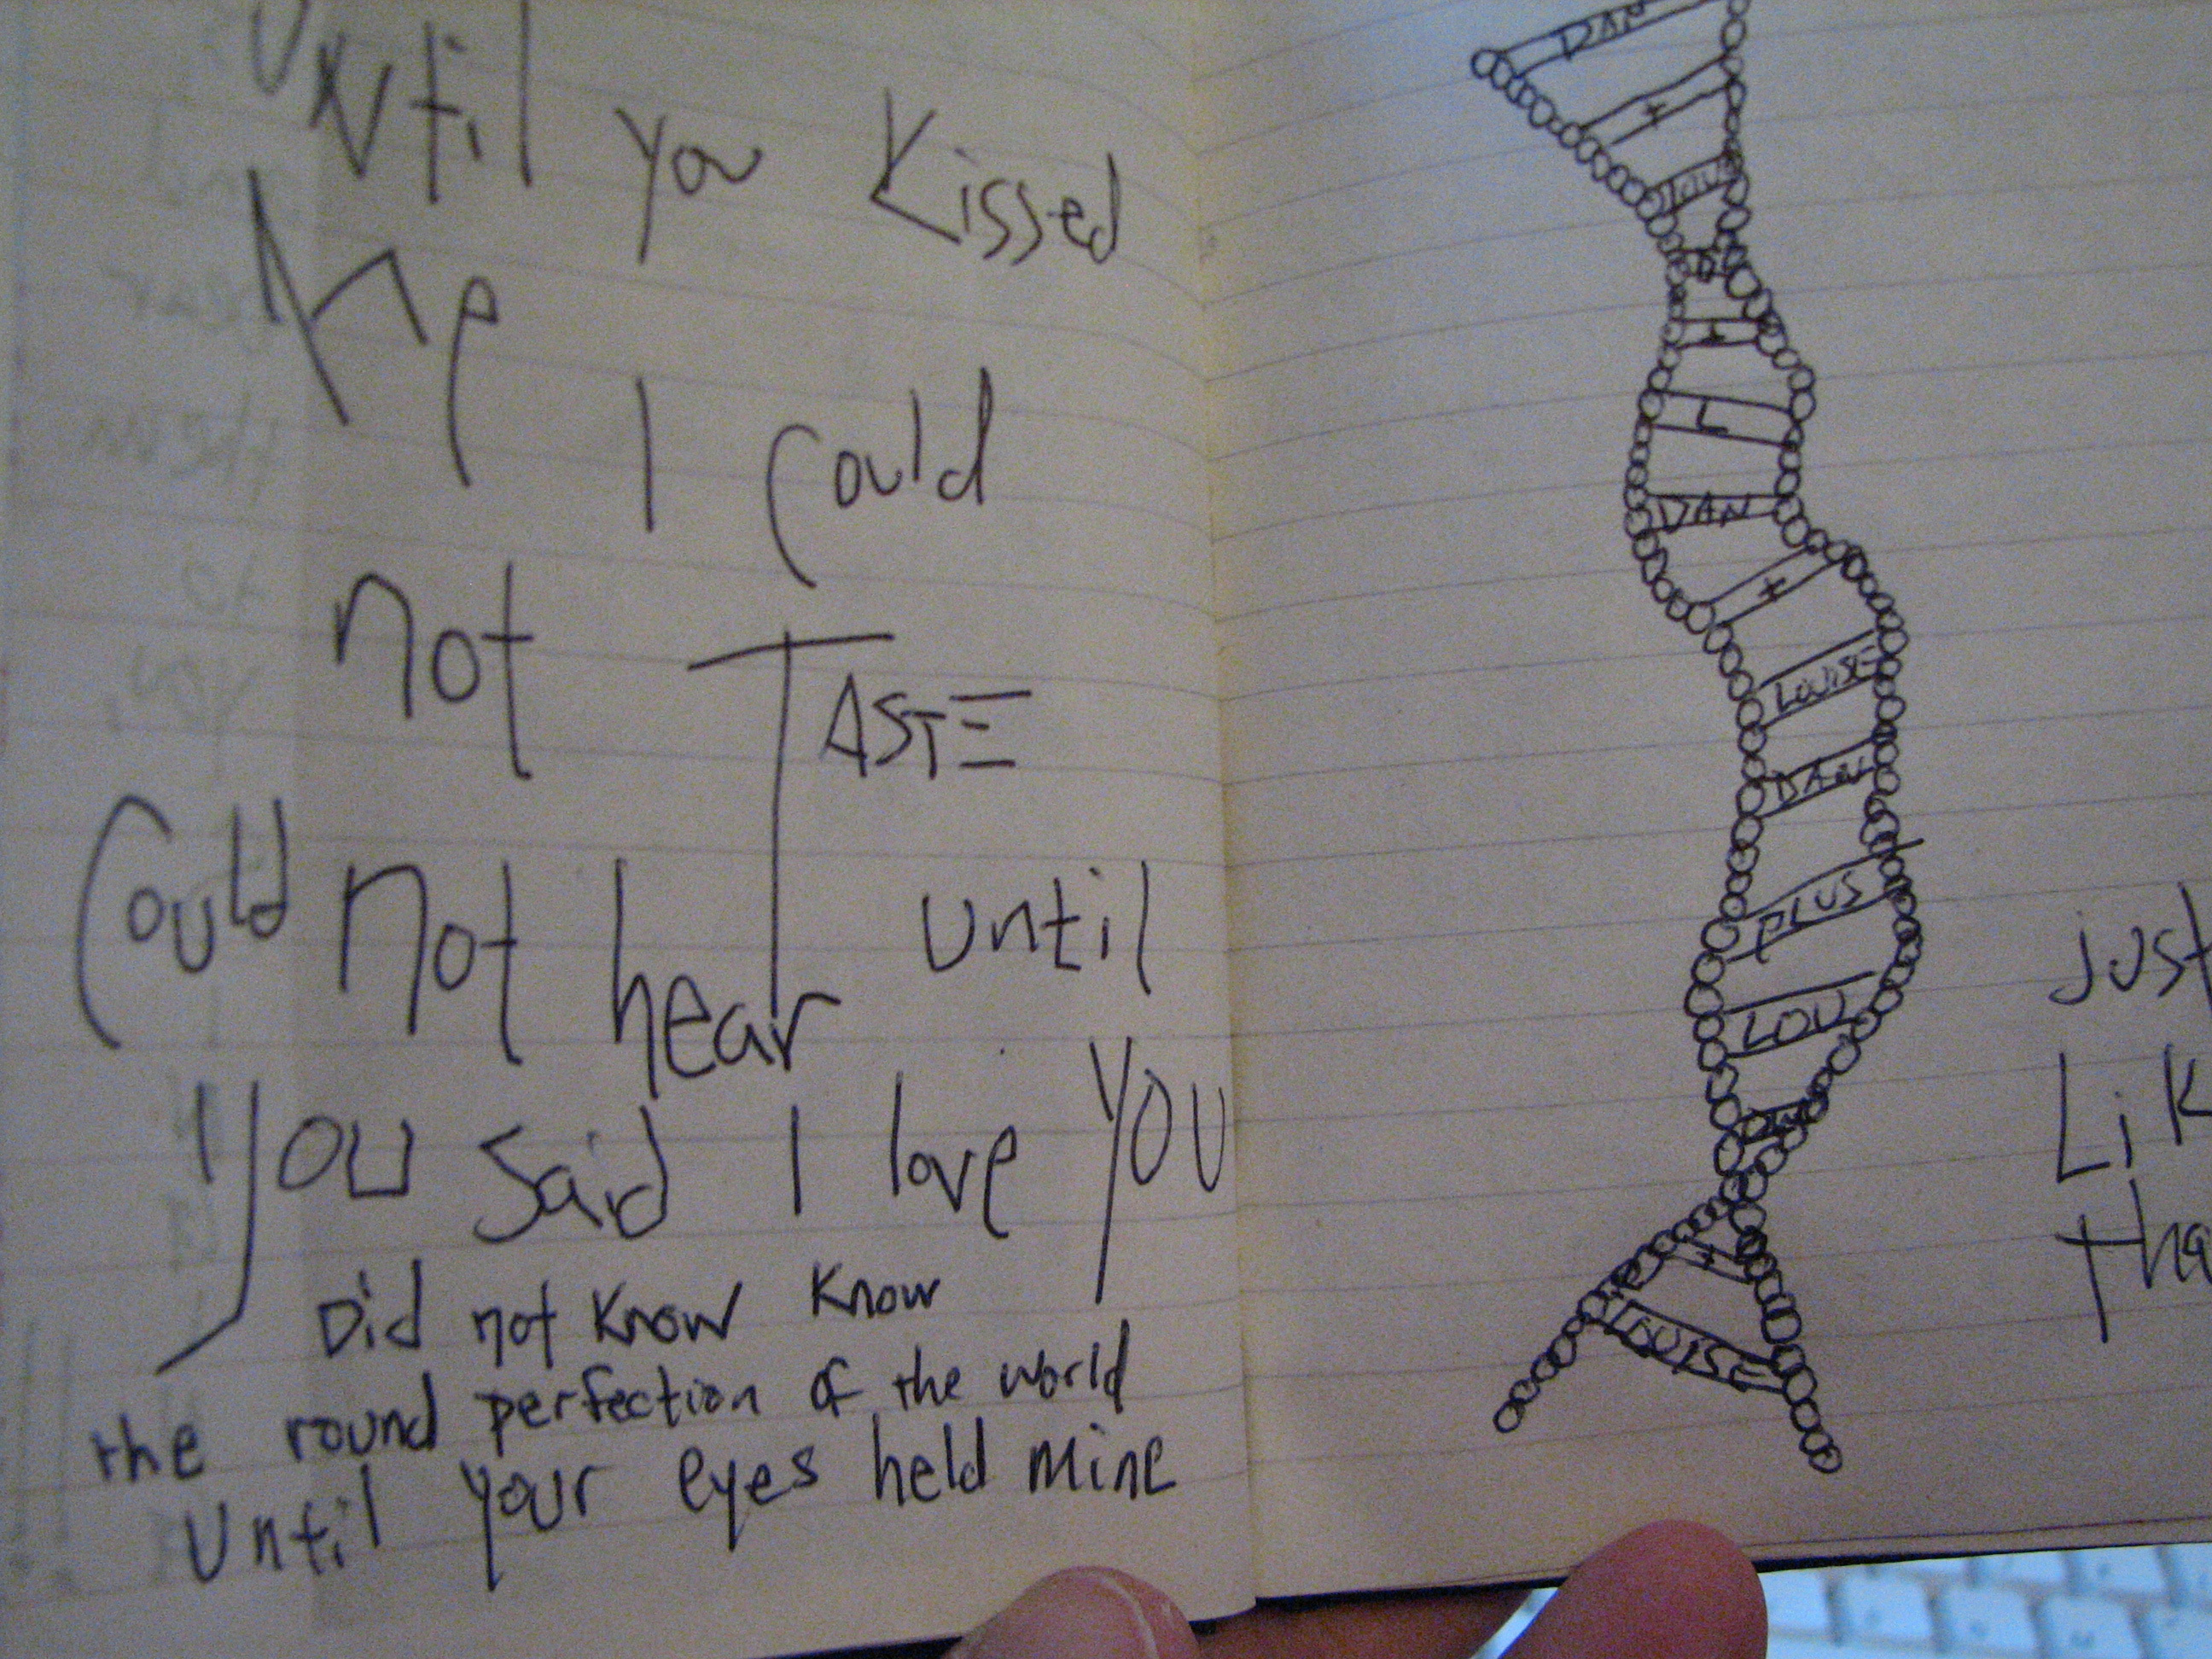 Until you Kissed
Me I Could
not TASTE
Could not hear until
you Said I love YOU
Did not know know
the round perfection of the world
Until your eyes held mine
DAN
+
LOU
D
+
L
DAN
+
LOUISE
DAN
PLUS
LOU
DAN
+
LOUISE
just
Lik
tha